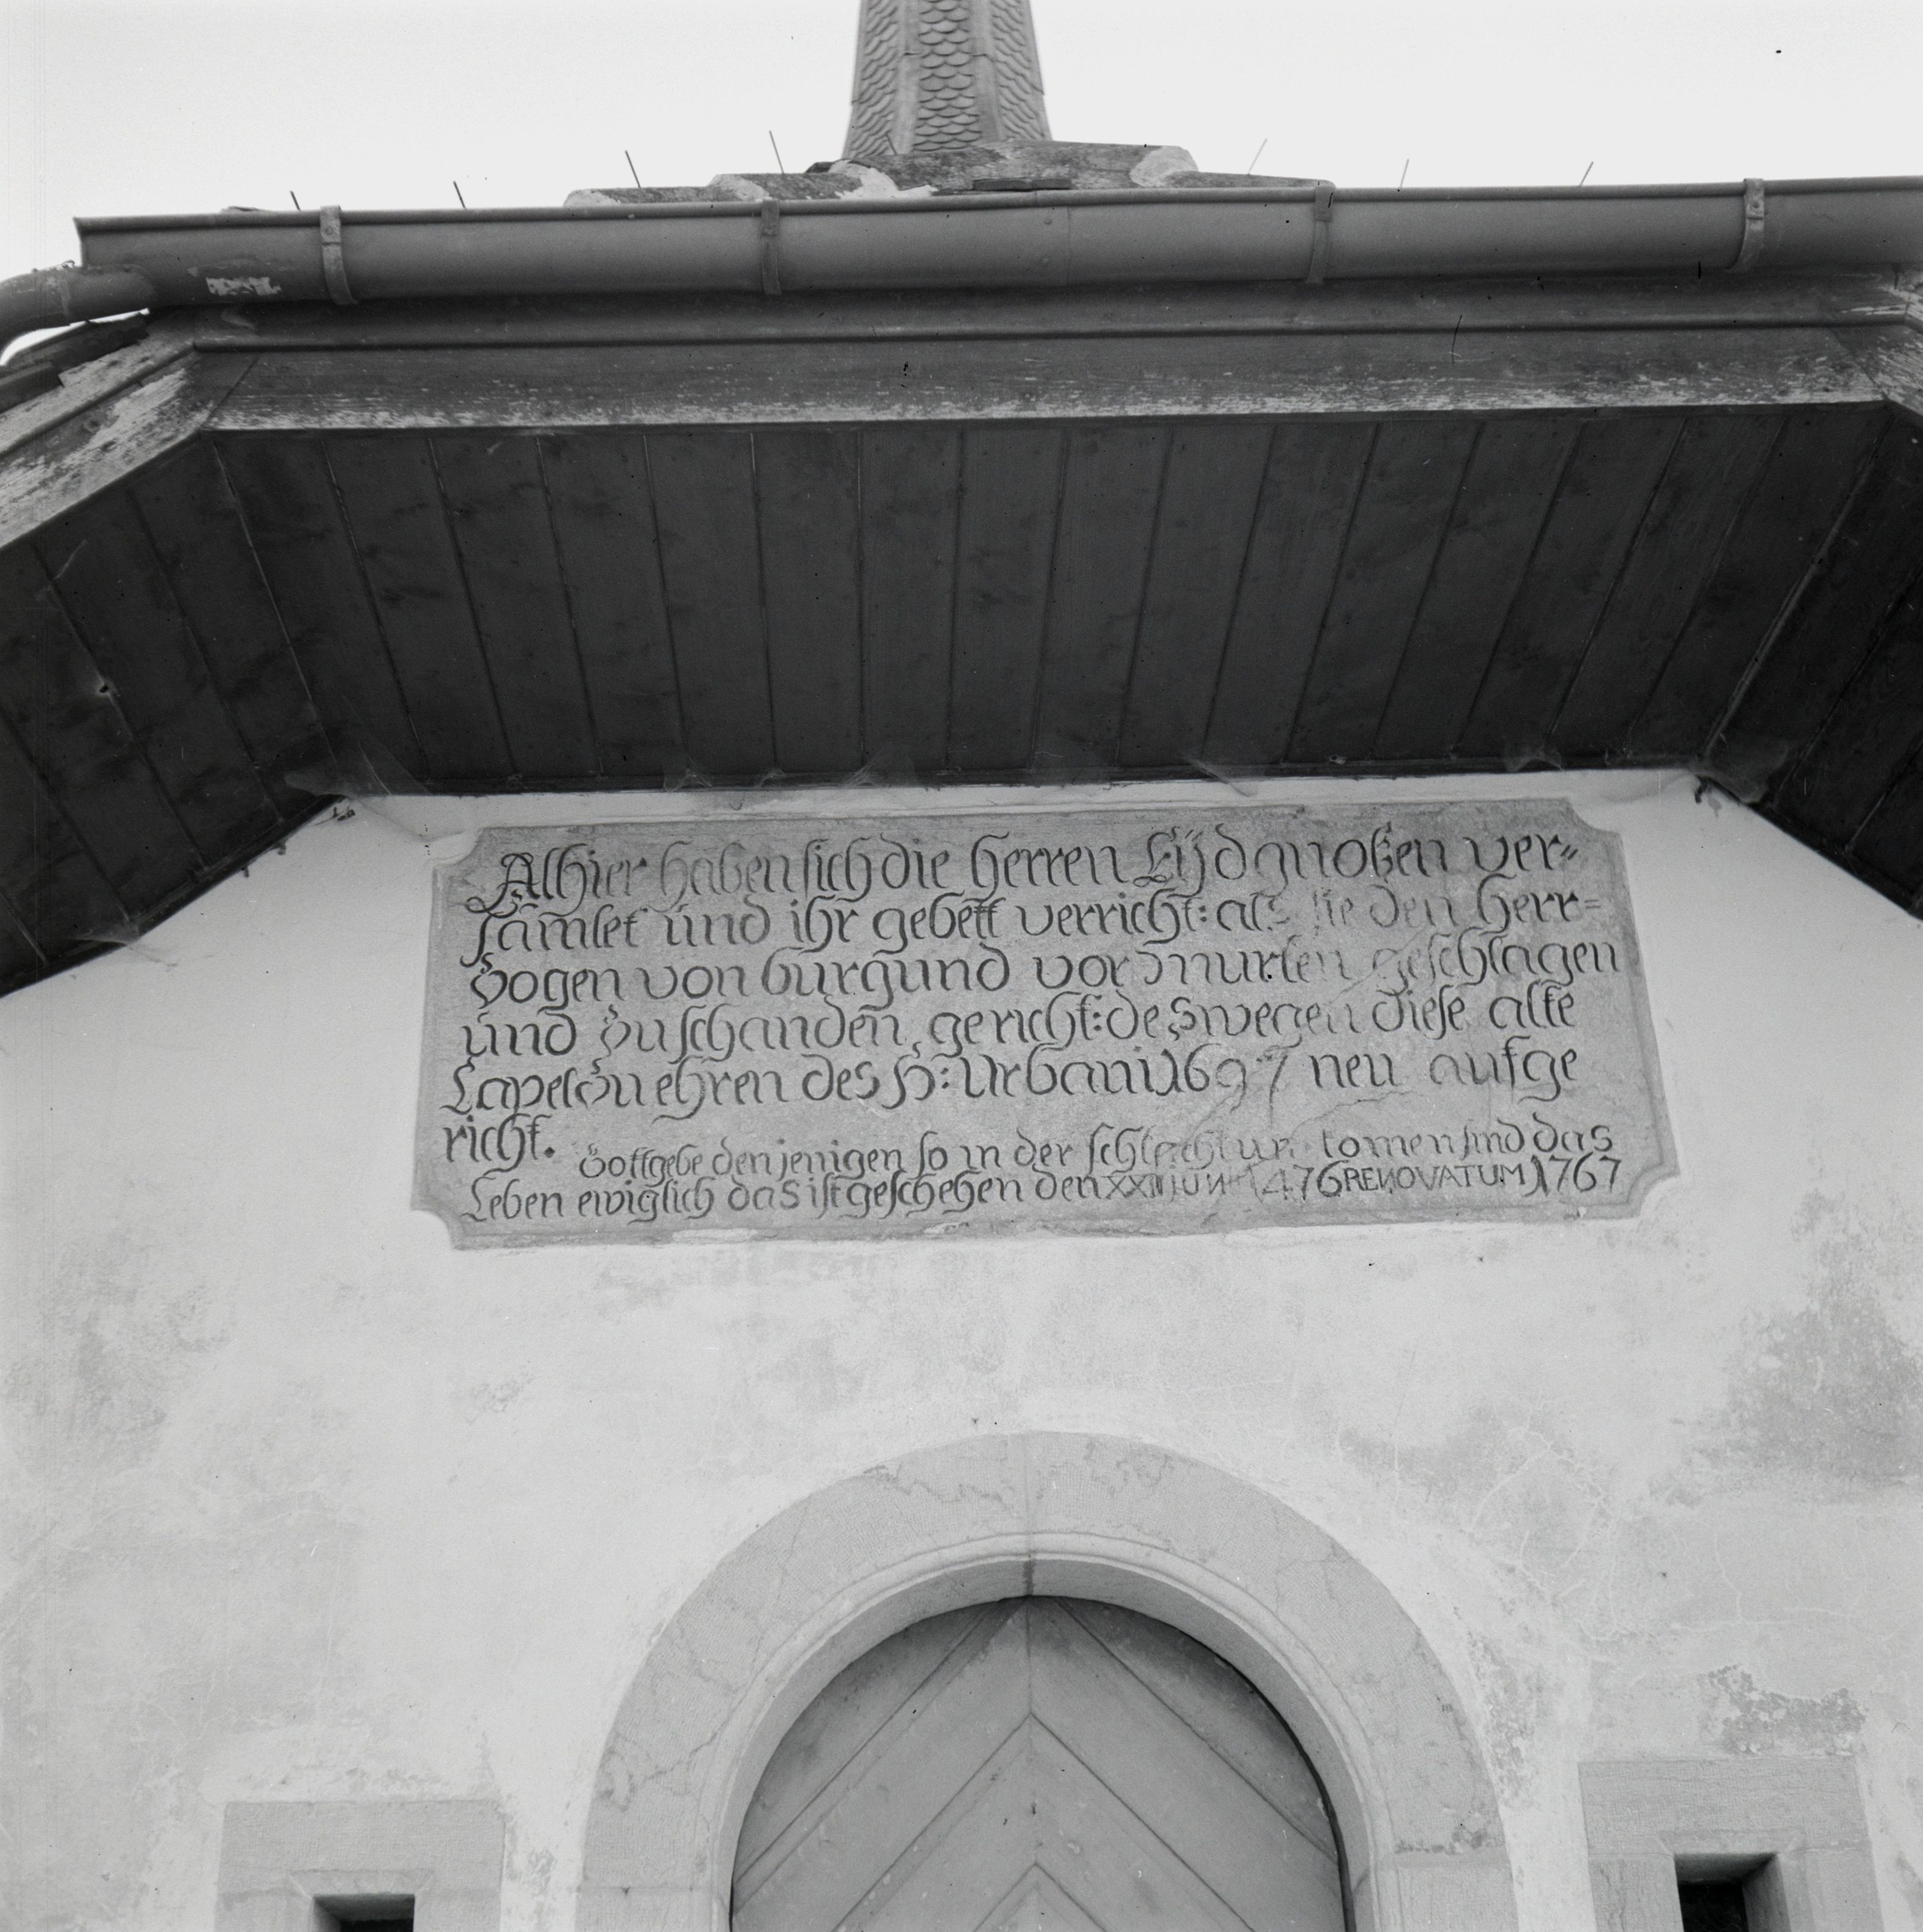 Alhier haben sich die herren Eÿdgnoßen ver=
samlet und ihr gebett verricht: als sie den herr=
zogen von burgund vor murten geschlagen
und zuschanden gericht: deswegen diese alte
Capel zu ehren des H: Urbani 1697 neu aufge
richt.
Gott gebe den jenigen so in der schlacht um komen sind das
Leben ewiglich das ist geschehen den XXII JUNI 1476 RENOVATUM 1767